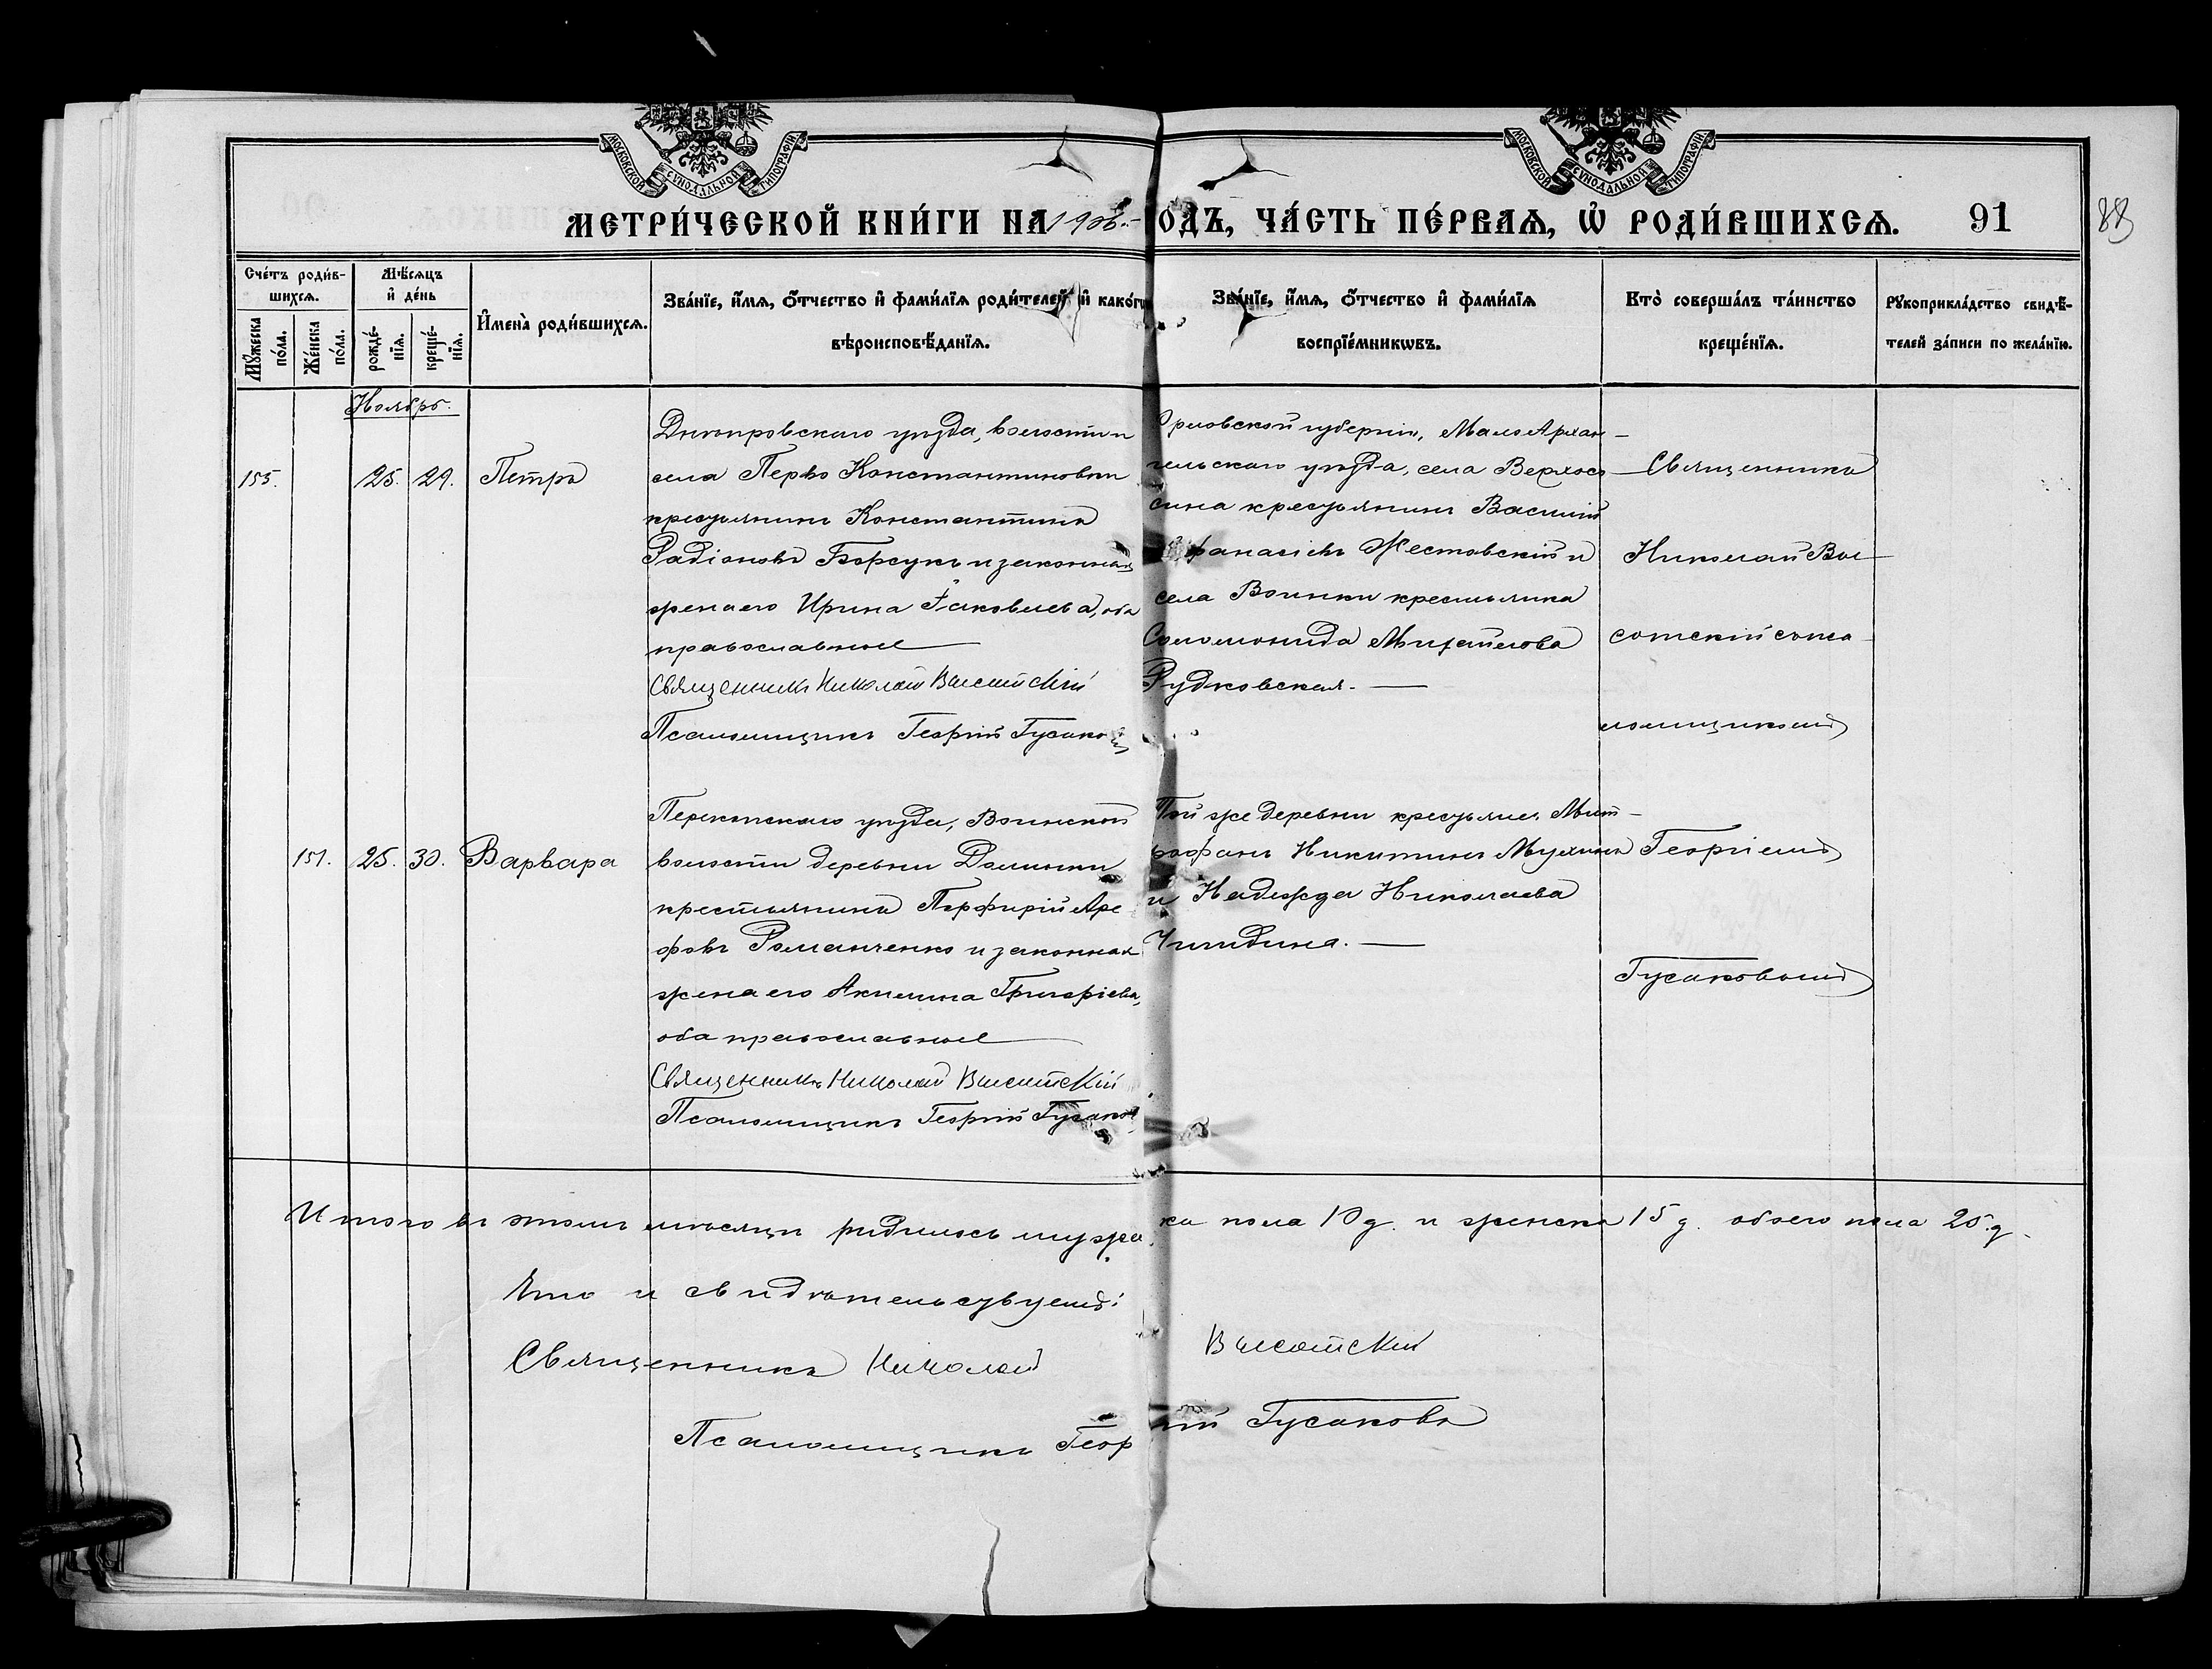 МОСКОВСКОЙ СУНОДАЛЬНОЙ ТИПОГРАФІИ
МОСКОВСКОЙ СУНОДАЛЬНОЙ ТИПОГРАФІИ
МЕТРИ́ЧЕСКОЙ КНИ́ГИ НА 190 ОДЪ, ЧА́СТЬ ПЕ́РВАЯ, Ѡ҆ РОДИ́ВШИХСѦ. 91
88
Счéтъ роди́в-
шихсѧ.
Мꙋ́жеска
по́ла.
Жéнска
по́ла.
Мѣ́сяцъ
и҆ дéнь
рождé-
нїѧ.
крещé-
нїѧ.
И҆мена̀ роди́вшихсѧ.
Зва́нїе, и҆́мѧ, о҆́тчество и҆ фами́лїѧ роди́телей и҆ како́гѡ
вѣроисповѣ́данїѧ.
Зва́нїе, и҆́мѧ, о҆́тчество и҆ фами́лїѧ
воспрїе́мникѡвъ.
Кто̀ соверша́лъ та́инство
креще́нїѧ.
Рꙋкоприкла́дство свидѣ́-
телей за́писи по жела́нїю.
Ноябрь.
155. 25. 29. Петръ
Днѣпровскаго уѣзда, волости и
села Перво Константиновки
крестьянинъ Константинъ
Радіоновъ Борсукъ и законная
жена его Ирина Іаковлева, оба
православные
Священникъ Николай Высотскій
Псаломщикъ Георгій Гусаковъ
Орловской губерніи, МалоАрхан-
гельскаго уѣзда, села Верхосо-
сина крестьянинъ Василій
Афанасіевъ Жестовскій и
села Воинки крестьянка
Соломонида Михайлова
Рудковская.
Священникъ
Николай Вы-
сотскій съ пса-
ломщикомъ
151. 25. 30. Варвара
Перекопскаго уѣзда, Воинской
волости деревни Долинки
крестьянинъ Порфирій Аре-
фовъ Романченко и законная
жена его Акилина Григоріева,
оба православные
Священникъ Николай Высотскій
Псаломщикъ Георгій Гусаковъ
Той же деревни крестьяне Мит-
рофанъ Никитинъ Мухинъ
и Надежда Николаева
Георгіемъ
Гусаковымъ
Итого въ этомъ мѣсяцѣ родилось мужеска пола 10 д. и женска 15 д. обоего пола 25 д.
Что и свидѣтельствуемъ:
Священникъ Николай Высотскій
Псаломщикъ Георгій Гусаковъ